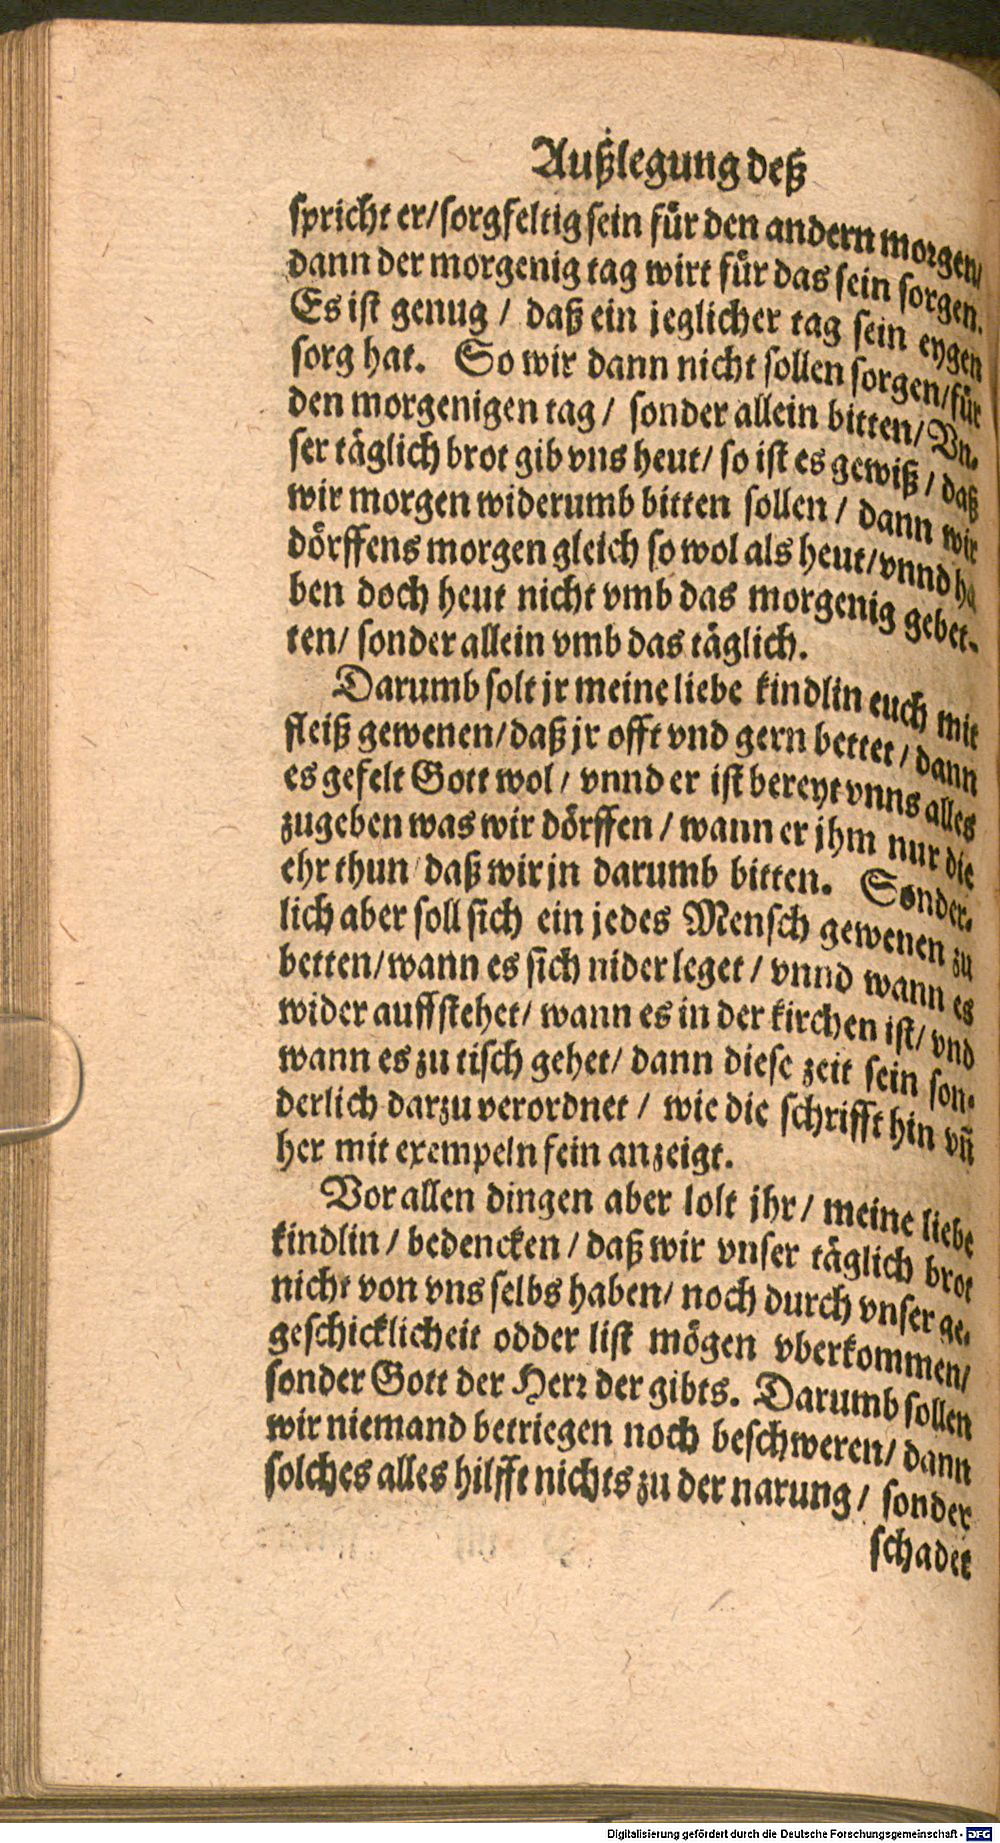 Außlegung deß
spricht er/ sorgfeltig sein für den andern morgen/
dann der morgenig tag wirt für das sein sorgen.
Es ist genug / daß ein jeglicher tag sein eygen
sorg hat. So wir dann nicht sollen sorgen/für
den morgenigen tag / sonder allein bitten/ Vn-
ser täglich brot gib vns heut/ so ist es gewiß / daß
wir morgen widerumb bitten sollen / dann wir
dörffens morgen gleich so wol als heut/ vnnd ha
ben doch heut nicht vmb das morgenig gebet-
ten/ sonder allein vmb das täglich.
Darumb solt jr meine liebe kindlin euch mit
fleiß gewenen/ daß jr offt vnd gern bettet / dann
es gefelt Gott wol / vnnd er ist bereyt vnns alles
zugeben was wir dörffen / wann er jhm nur die
ehr thun / daß wir jn darumb bitten. Sonder-
lich aber soll sich ein jedes Mensch gewenen zu
betten/ wann es sich nider leget / vnnd wann es
wider auffstehet/ wann es in der kirchen ist/ vnd
wann es zu tisch gehet/ dann diese zeit sein son-
derlich darzu verordnet / wie die schrifft hin vñ
her mit exempeln fein anzeigt.
Vor allen dingen aber solt jhr / meine liebe
kindlin / bedencken / daß wir vnser täglich brot
nicht von vns selbs haben/ noch durch vnser ge-
geschicklicheit odder list mögen vberkommen/
sonder Gott der Herr der gibts. Darumb sollen
wir niemand betriegen noch beschweren/ dann
solches alles hilfft nichts zu der narung / sonder
schadet
Digitalisierung gefördert durch die Deutsche Forschungsgemeinschaft - DFG